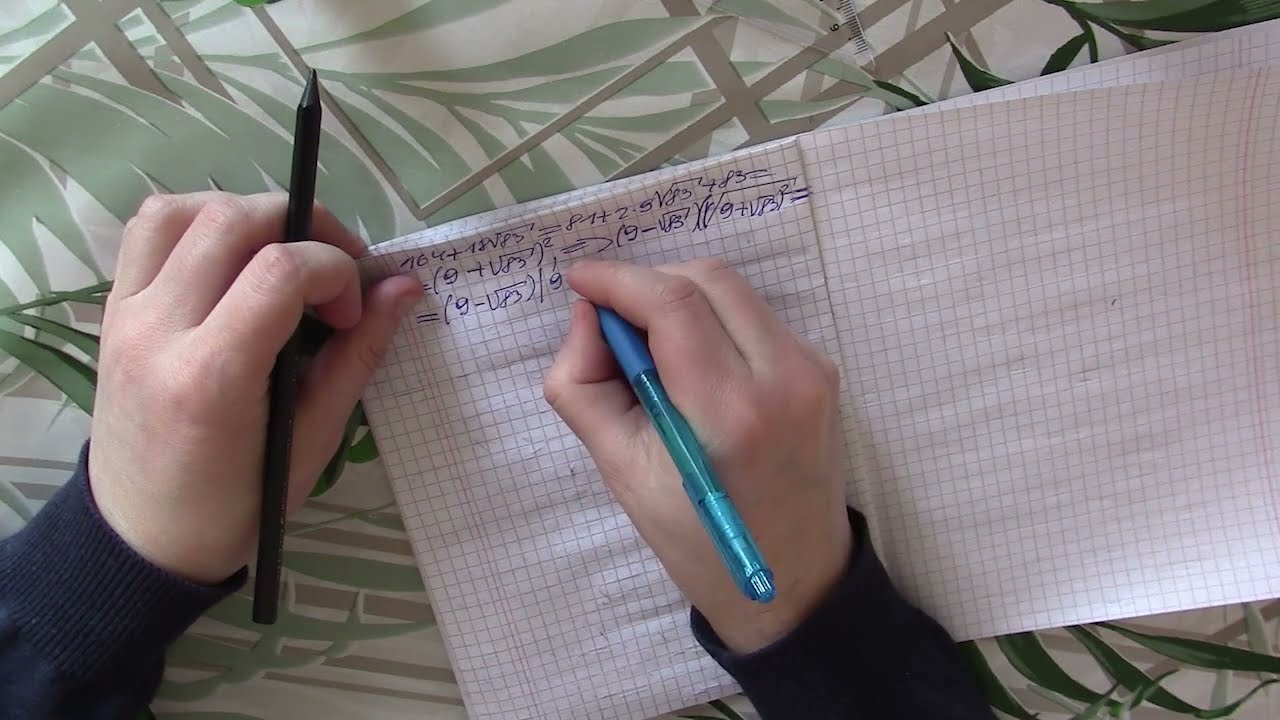 164+18√83 = 81+2·9√83+83=
=(9+√83)² => (9-√83)(√(9+√83)²=
=(9-√83)|9